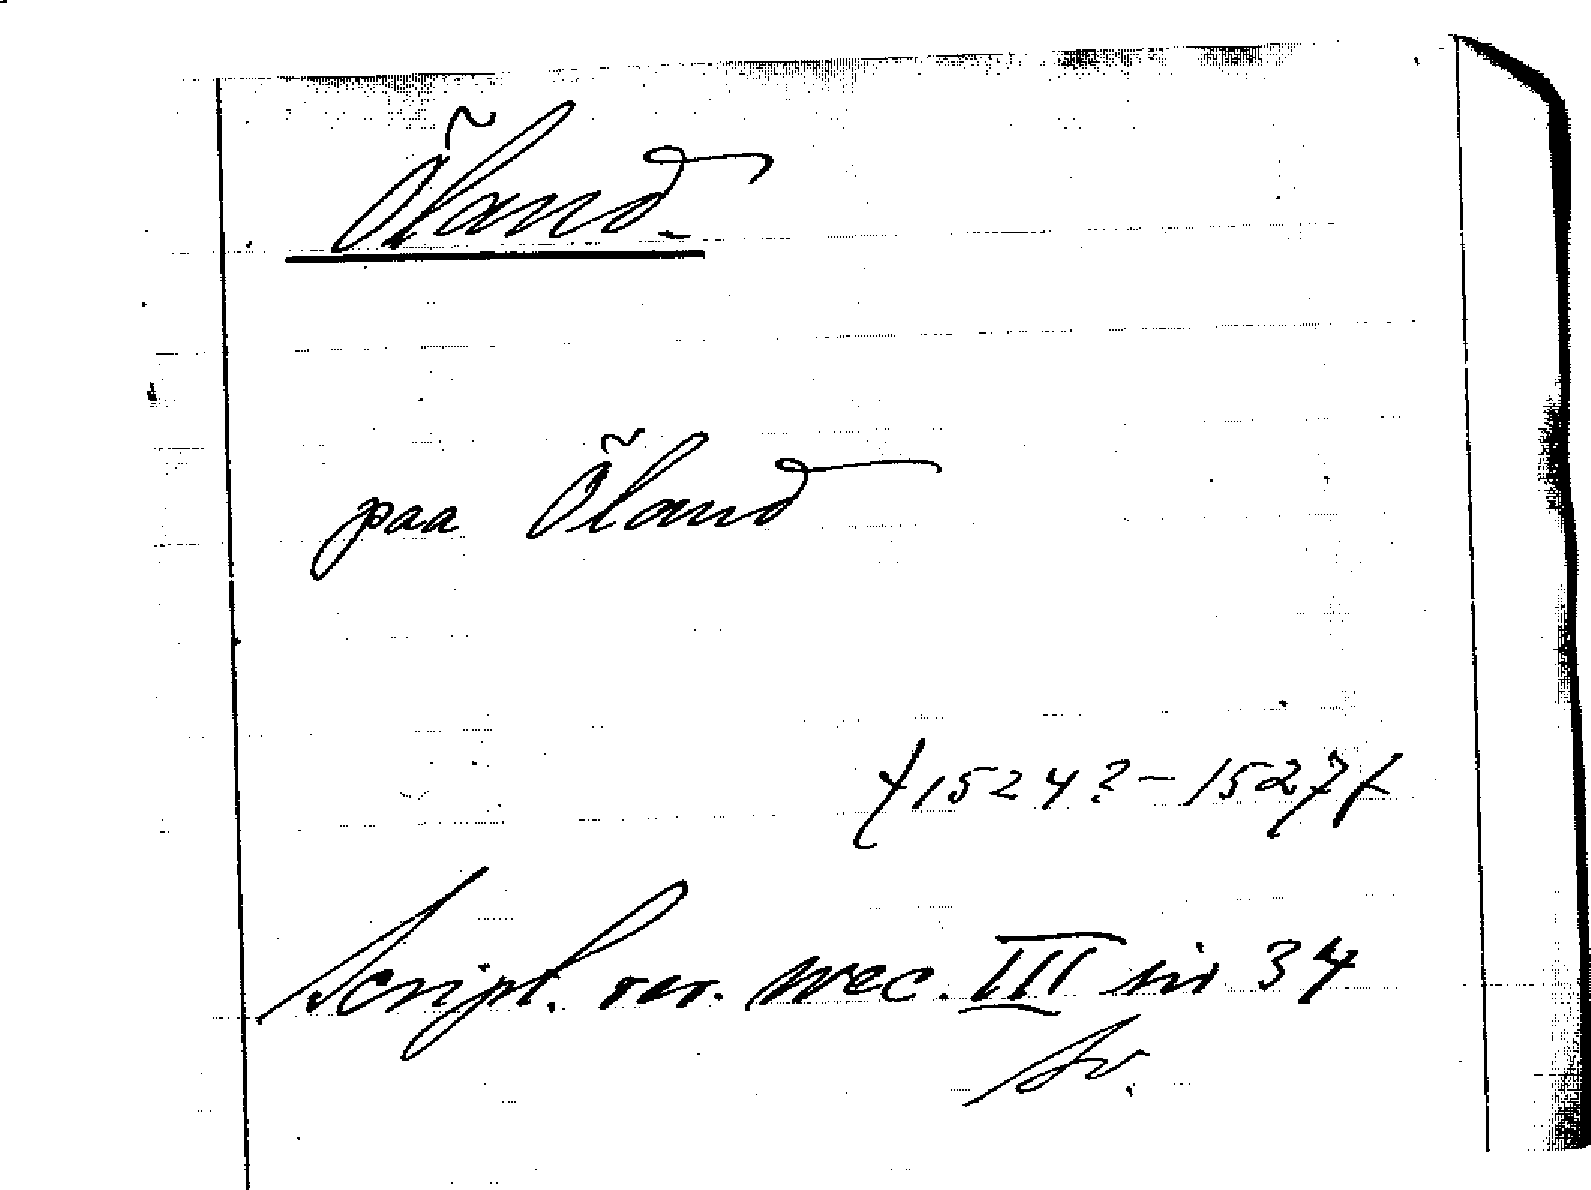 Öland.
paa Öland
(1524?-1527)
Script. rer. svec. III sid 34
Sv.